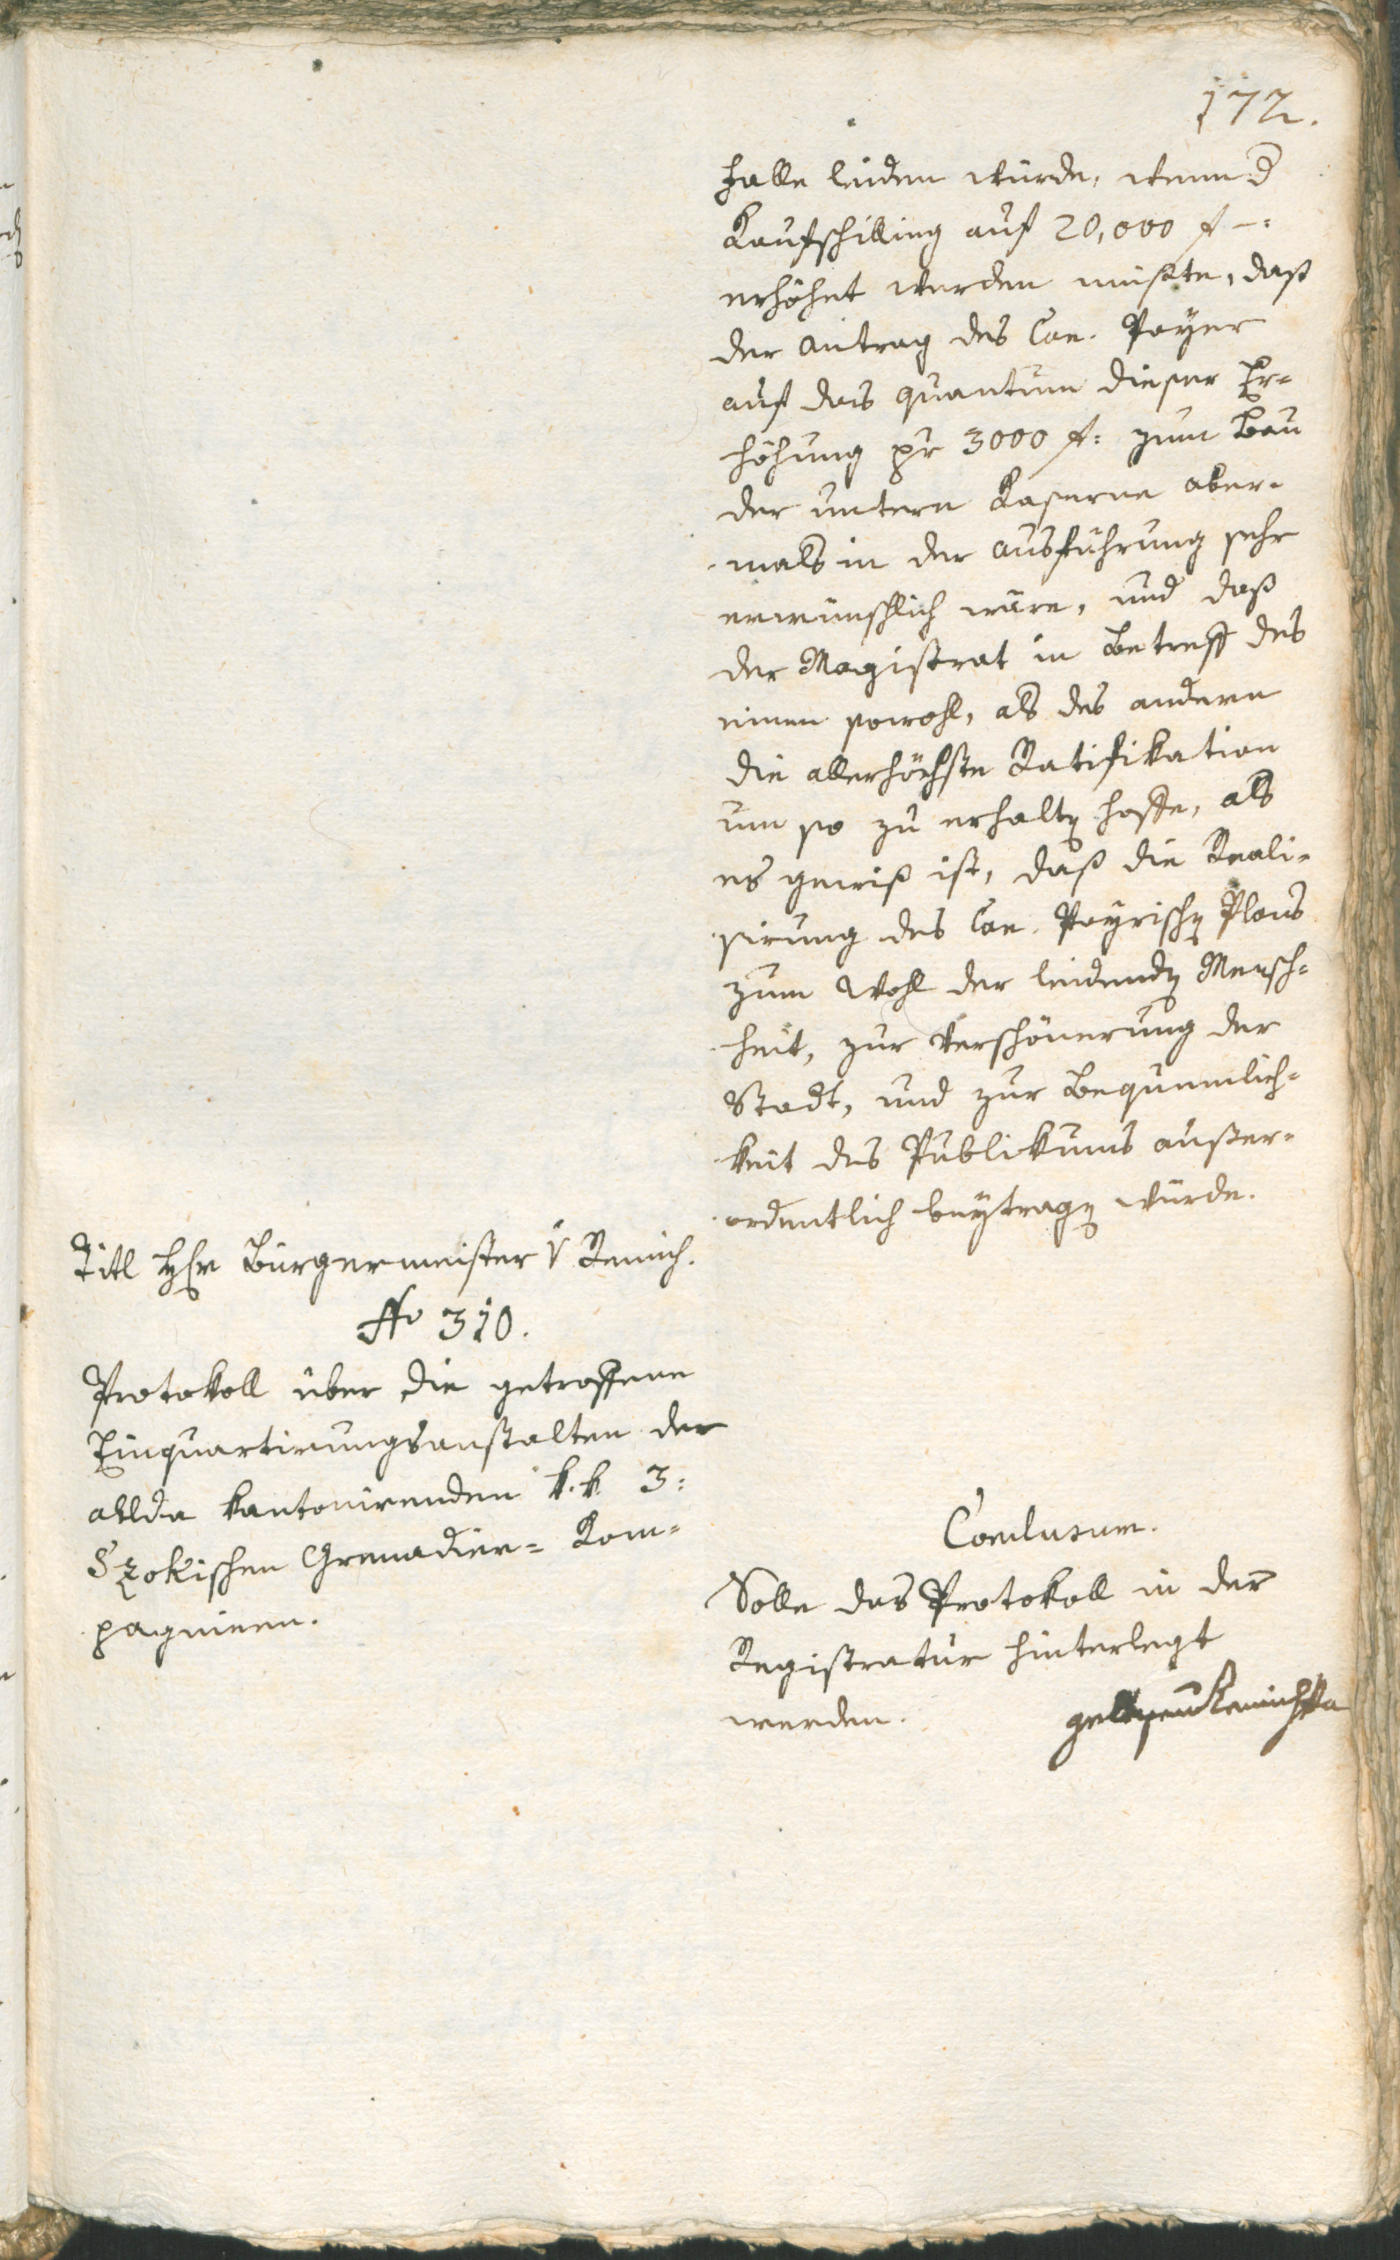 172.
falle leiden würde, wenn d
Kaufschilling auf 20,000 f –:
erhöhet werden müßte, daß
der Antrag des Can. Payer
auf das quantum dieser Er=
höhung pr 3000 f: zum Bau
der untern Kaserne aber=
mals in der Ausführung sehr
erwünschlich wäre, und daß
der Magistrat in Betreff des
einen sowohl, als des andern
die allerhöchste Ratifikation
um so zu erhalten hoffe, als
es gewiß ist, daß die Reali=
sirung des Can. Payrischen Plans
zum Wohl der leidenden Mensch=
heit, zur Verschönerung der
Stadt, und zur Bequemlich=
keit des Publikums außer=
ordentlich beytragen würde.
Titl Hr Bürgermeister v Remich.
No 310.
Protokoll über die getroffene
Einquartirungsanstalten der
allda kantonirenden k.k. 3:
Szokischen Grenadier= Kom=
pagnieen.
Conclusum.
Solle das Protokoll in der
Registratur hinterlegt
werden.